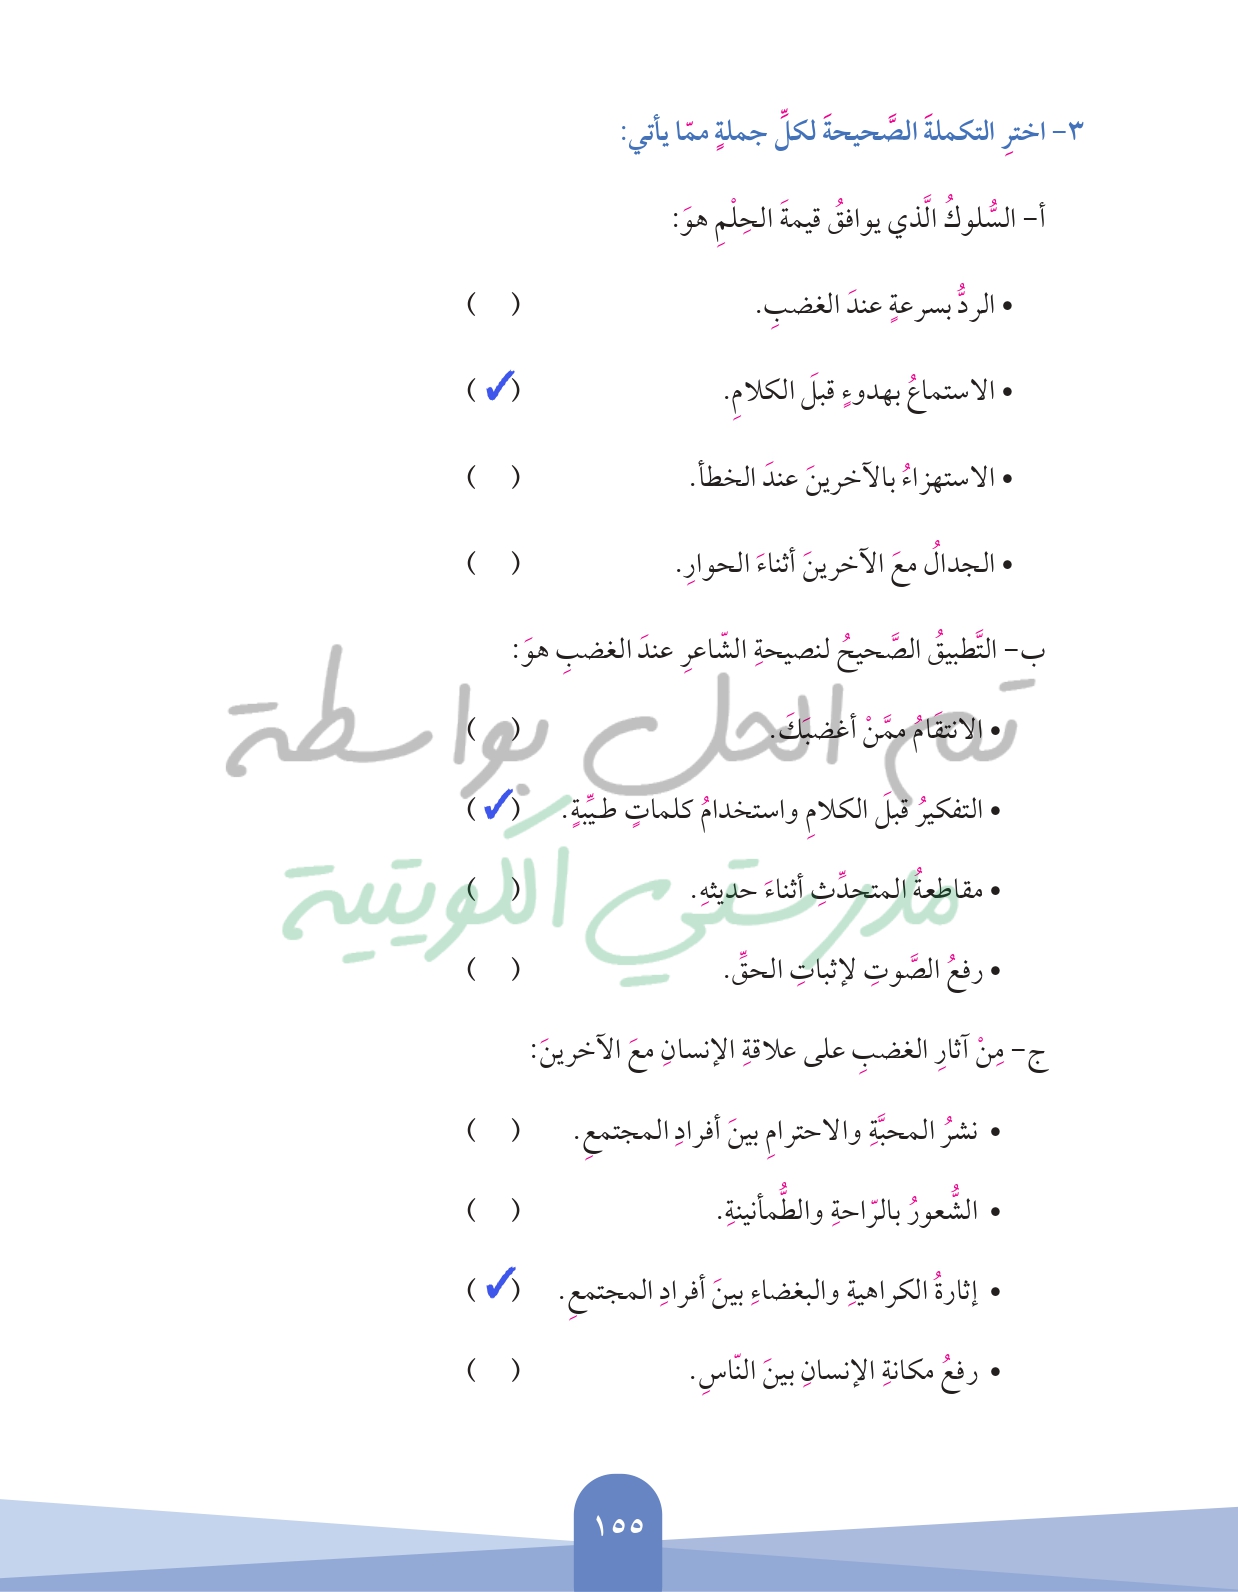 ٣- اخترِ التكملةَ الصَّحيحةَ لكلِّ جملةٍ ممّا يأتي:
أ- السُّلوكُ الَّذي يوافقُ قيمةَ الحِلْمِ هوَ:
• الردُّ بسرعةٍ عندَ الغضبِ. ( )
• الاستماعُ بهدوءٍ قبلَ الكلامِ. (✓)
• الاستهزاءُ بالآخرينَ عندَ الخطأ. ( )
• الجدالُ معَ الآخرينَ أثناءَ الحوارِ. ( )
ب- التَّطبيقُ الصَّحيحُ لنصيحةِ الشّاعرِ عندَ الغضبِ هوَ:
• الانتقَامُ ممَّنْ أغضبَكَ. ( )
تم الحل بواسطة
• التفكيرُ قبلَ الكلامِ واستخدامُ كلماتٍ طيِّبةٍ. (✓)
• مقاطعةُ المتحدِّثِ أثناءَ حديثهِ. ( )
مدرستي الكويتية
• رفعُ الصَّوتِ لإثباتِ الحقِّ. ( )
ج- مِنْ آثارِ الغضبِ على علاقةِ الإنسانِ معَ الآخرينَ:
• نشرُ المحبَّةِ والاحترامِ بينَ أفرادِ المجتمعِ. ( )
• الشُّعورُ بالرّاحةِ والطُّمأنينةِ. ( )
• إثارةُ الكراهيةِ والبغضاءِ بينَ أفرادِ المجتمعِ. (✓)
• رفعُ مكانةِ الإنسانِ بينَ النّاسِ. ( )
١٥٥